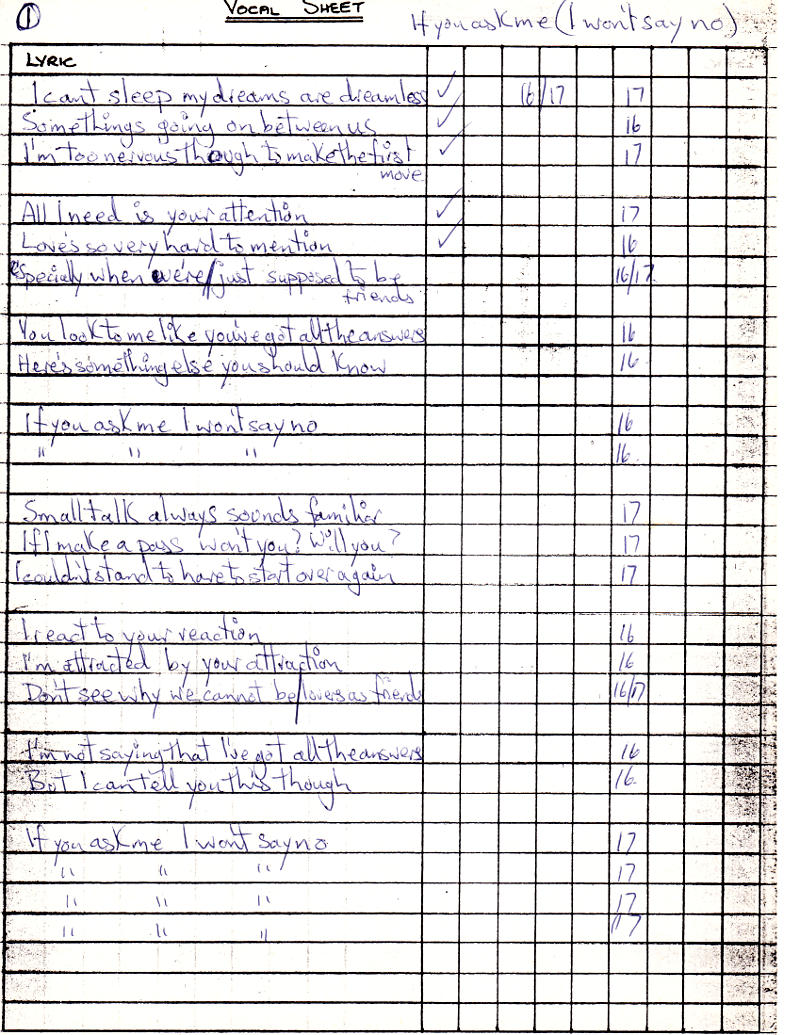 ① VOCAL SHEET If you ask me (I won't say no)
LYRIC
I can't sleep my dreams are dreamless ✓ 16/17 17
Somethings going on between us ✓ 16
I'm too nervous though to make the first ✓ 17
move
All I need is your attention ✓ 17
Love's so very hard to mention ✓ 16
especially when we're/just supposed to be 16/17
friends
You look to me like you've got all the answers 16
Here's something else you should know 16
If you ask me I won't say no 16
" " " 16
Small talk always sounds familiar 17
If I make a pass won't you? Will you? 17
I couldn't stand to have to start over again 17
I react to your reaction 16
I'm attracted by your attraction 16
Don't see why we cannot be/lovers as friends 16/17
I'm not saying that I've got all the answers 16
But I can tell you this though 16
If you ask me I won't say no 17
" " " 17
" " " 17
" " " 17